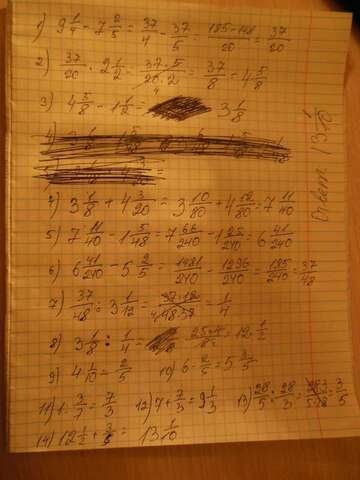 1) 9 1/4 - 7 2/5 = 37/4 - 37/5 = 185-148/20 = 37/20
2) 37/20 · 2 1/2 = 37·5/20·2 = 37/8 = 4 5/8
3) 4 5/8 - 1 1/2 = 3 1/8
4) 3 1/8 + 4 3/20 = 3 10/80 + 4 12/80 = 7 11/40
5) 7 11/40 - 1 5/48 = 7 66/240 - 1 25/240 = 6 41/240
6) 6 41/240 - 5 2/5 = 1481/240 - 1296/240 = 185/240 = 37/48
7) 37/48 : 3 1/12 = 37·12/48·37 = 1/4
8) 3 1/8 : 1/4 = 25·4/8 = 12 1/2
9) 4 1/10 = 2/5 10) 6 - 2/5 = 5 3/5
11) 1 : 3/7 = 7/3 12) 7 + 7/3 = 9 1/3 13) 28/5 : 28/3 = 28·3/5·28 = 3/5
14) 12 1/2 + 3/5 = 13 1/10
Ответ 13 1/10